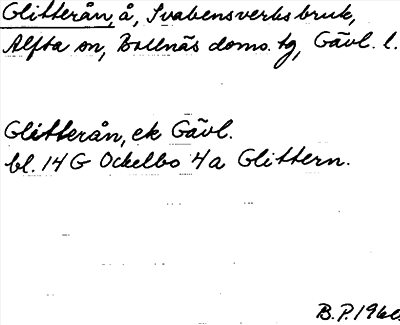 Glitterån, å, Svabensverks bruk,
Alfta sn, Bollnäs doms. tg, Gävl. l.
Glitterån, ek Gävl.
bl. 14 G Ockelbo 4a Glittern.
B.P. 1960.